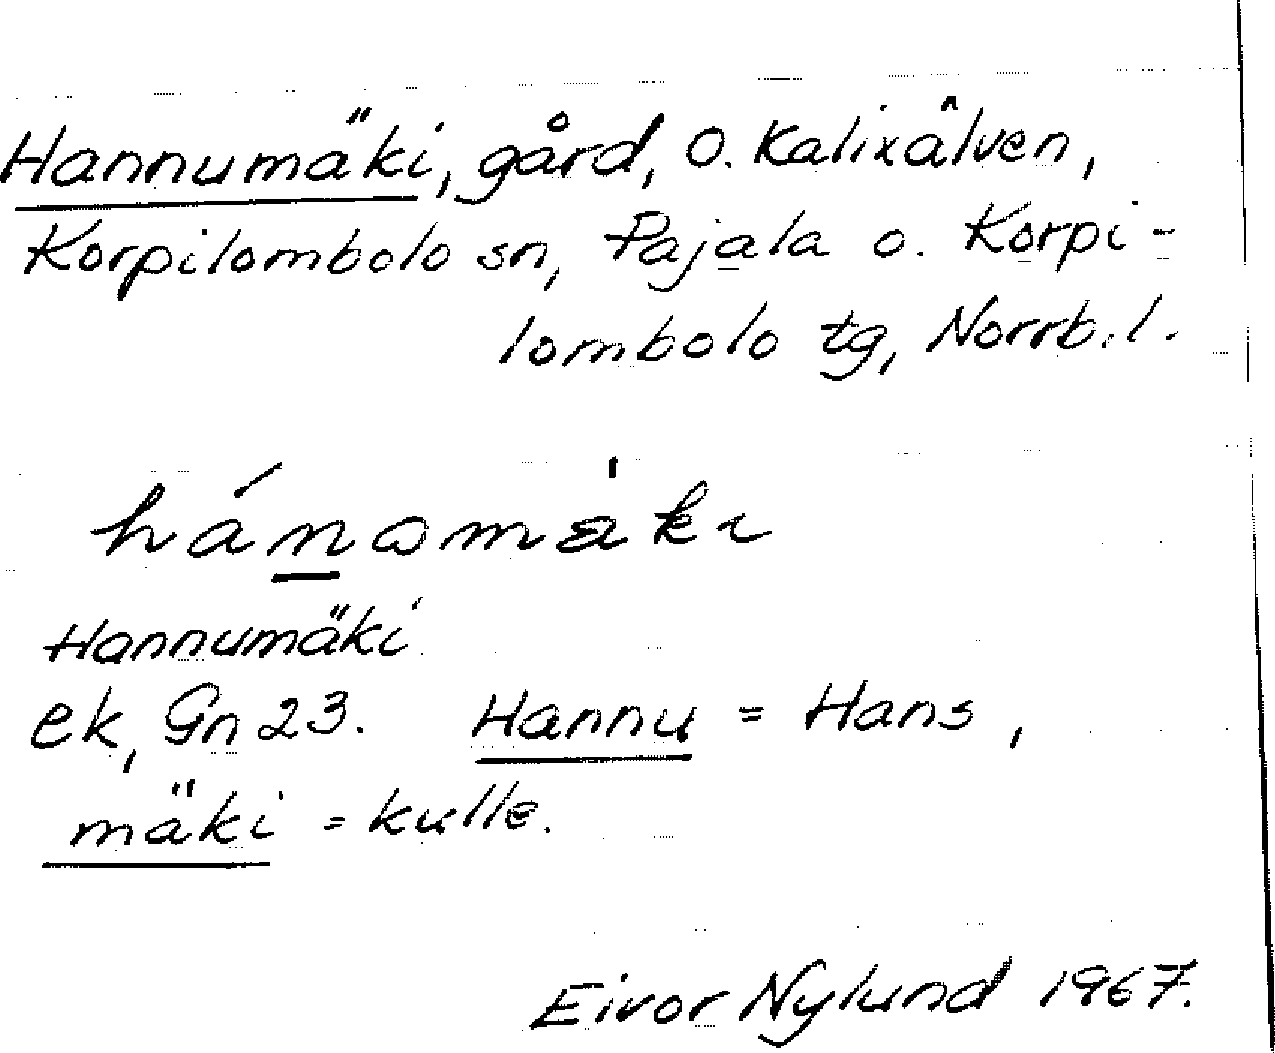 Hannumäki, gård, O. Kalixälven,
Korpilombolo sn, Pajala o. Korpi-
lombolo tg, Norrb. l.
Hannumäki
ek, Gn 23. Hannu = Hans,
mäki = kulle.
Eivor Nylund 1967.